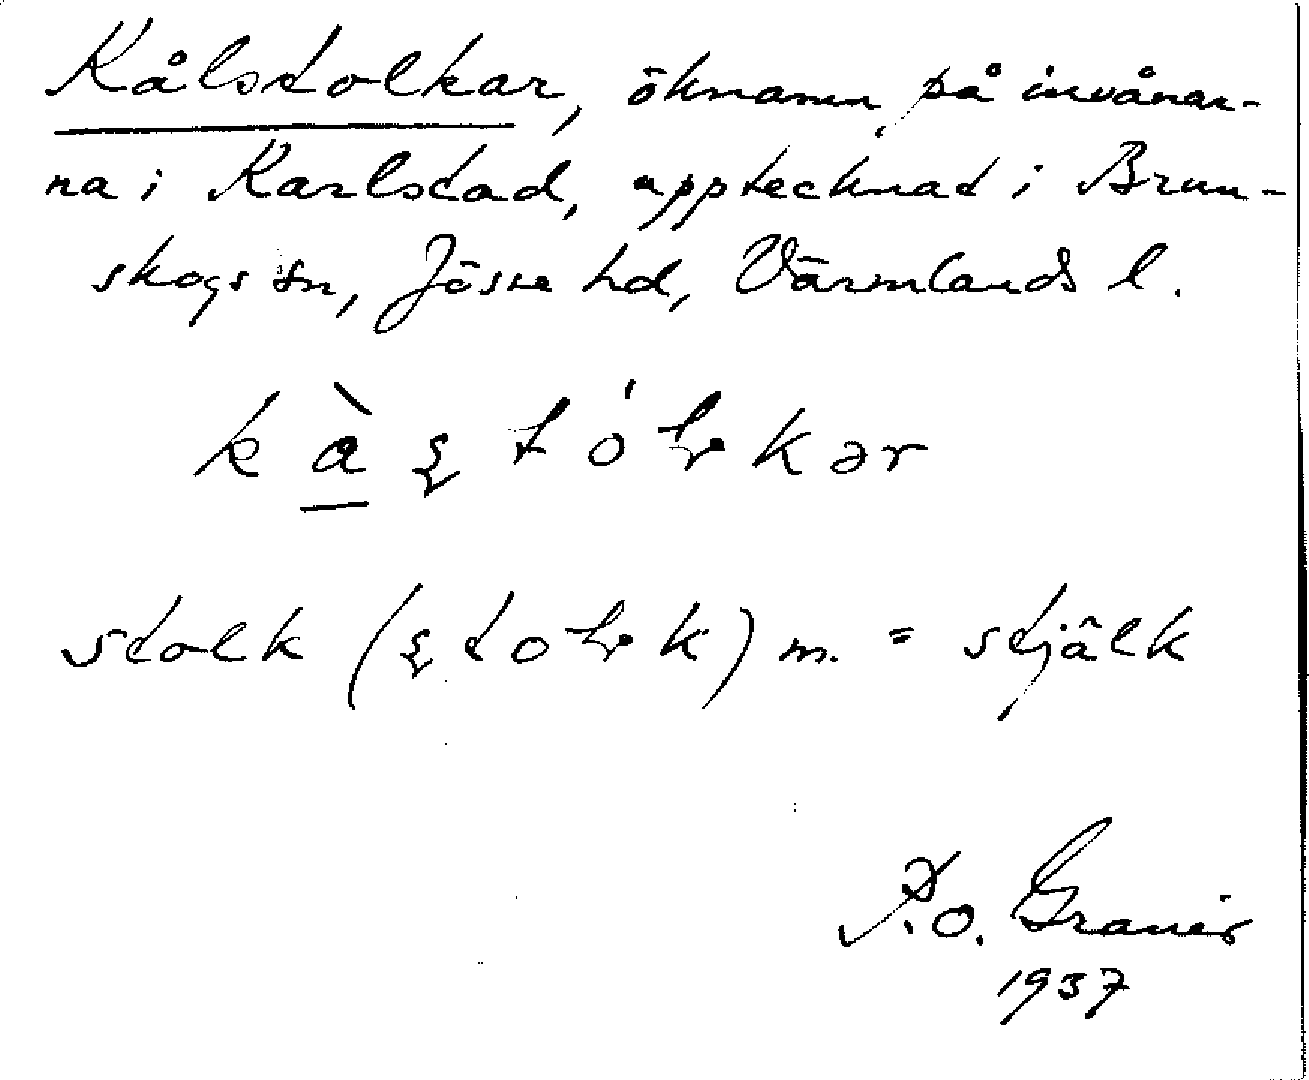 Kålstolkar, öknamn på invånar-
na i Karlstad, upptecknat i Brun-
skogs sn, Jösse hd, Värmlands l.
stolk m. = stjälk
P.O. Graner
1937